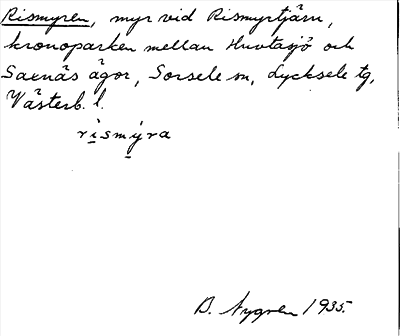 Rismyren, myr vid Rismyrtjärn,
kronoparken mellan Huvtasjö och
Saxnäs ägor, Sorsele sn, Lycksele tg,
Västerb. l.
rismýra
B. Nygren 1935.